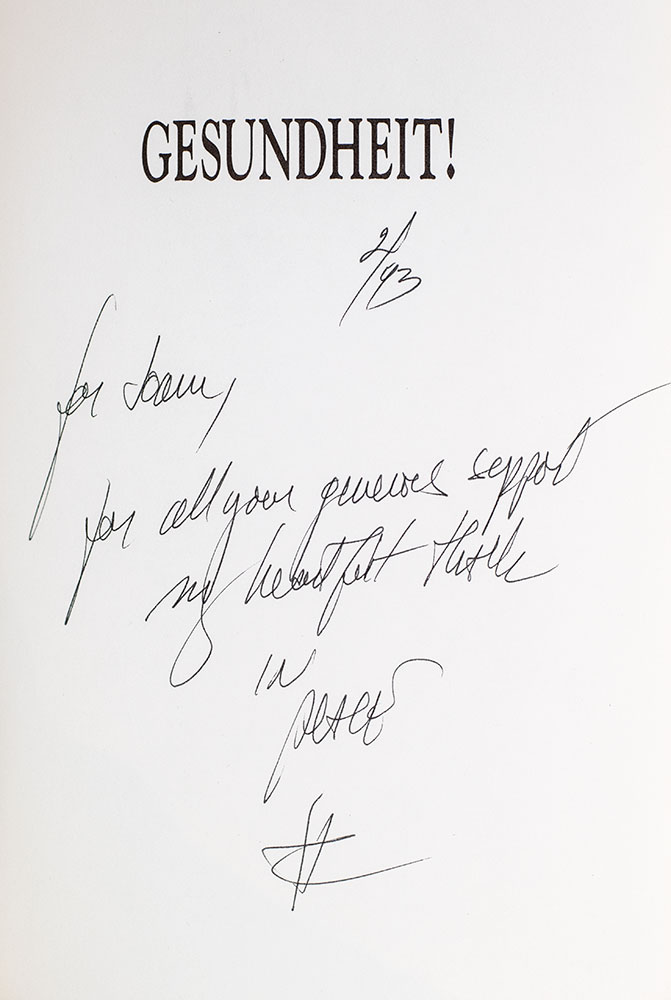 GESUNDHEIT!
2/93
for Joann,
for all your generous support
my heartfelt thanks
IN
peace